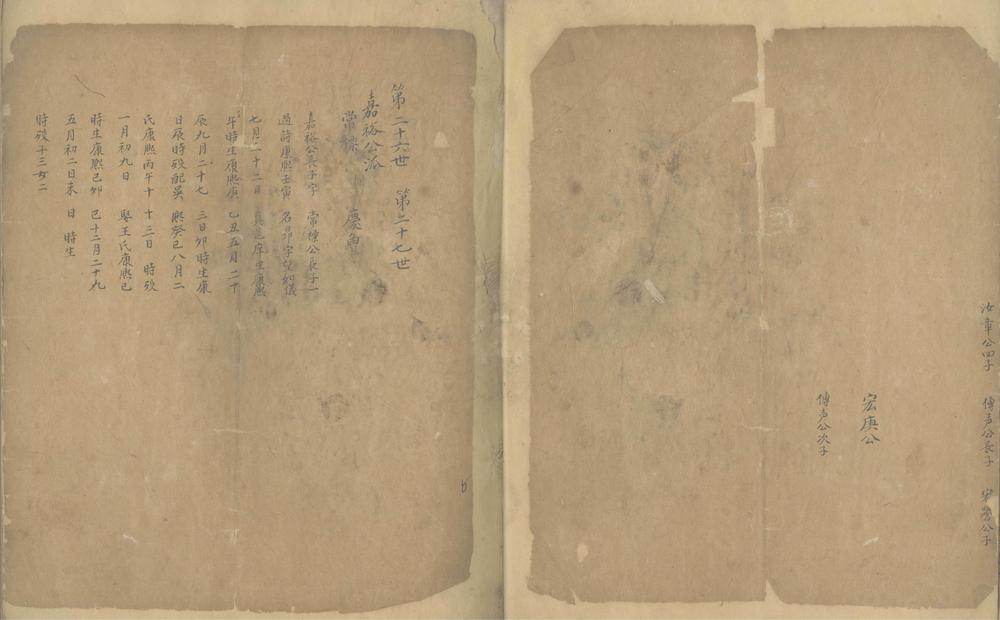 汝章公四子 傳声公長子 宏譽公子
宏庚公
傳声公次子
第二十六世 第二十七世
嘉裕公派
常標 慶魯
嘉裕公長子字 常標公長子一
過詩康熙壬寅 名昂字
七月二十二日 庠生康熙
午時生康熙庚 乙丑五月二十
辰九月二十七 三日卯時生康
日辰時歿配吳 熙癸巳八月二
氏康熙丙午十 十三日 時歿
一月初九日 娶王氏康熙己
時生康熙己卯 巳十二月二十九
五月初二日未 日 時生
時歿子三女二